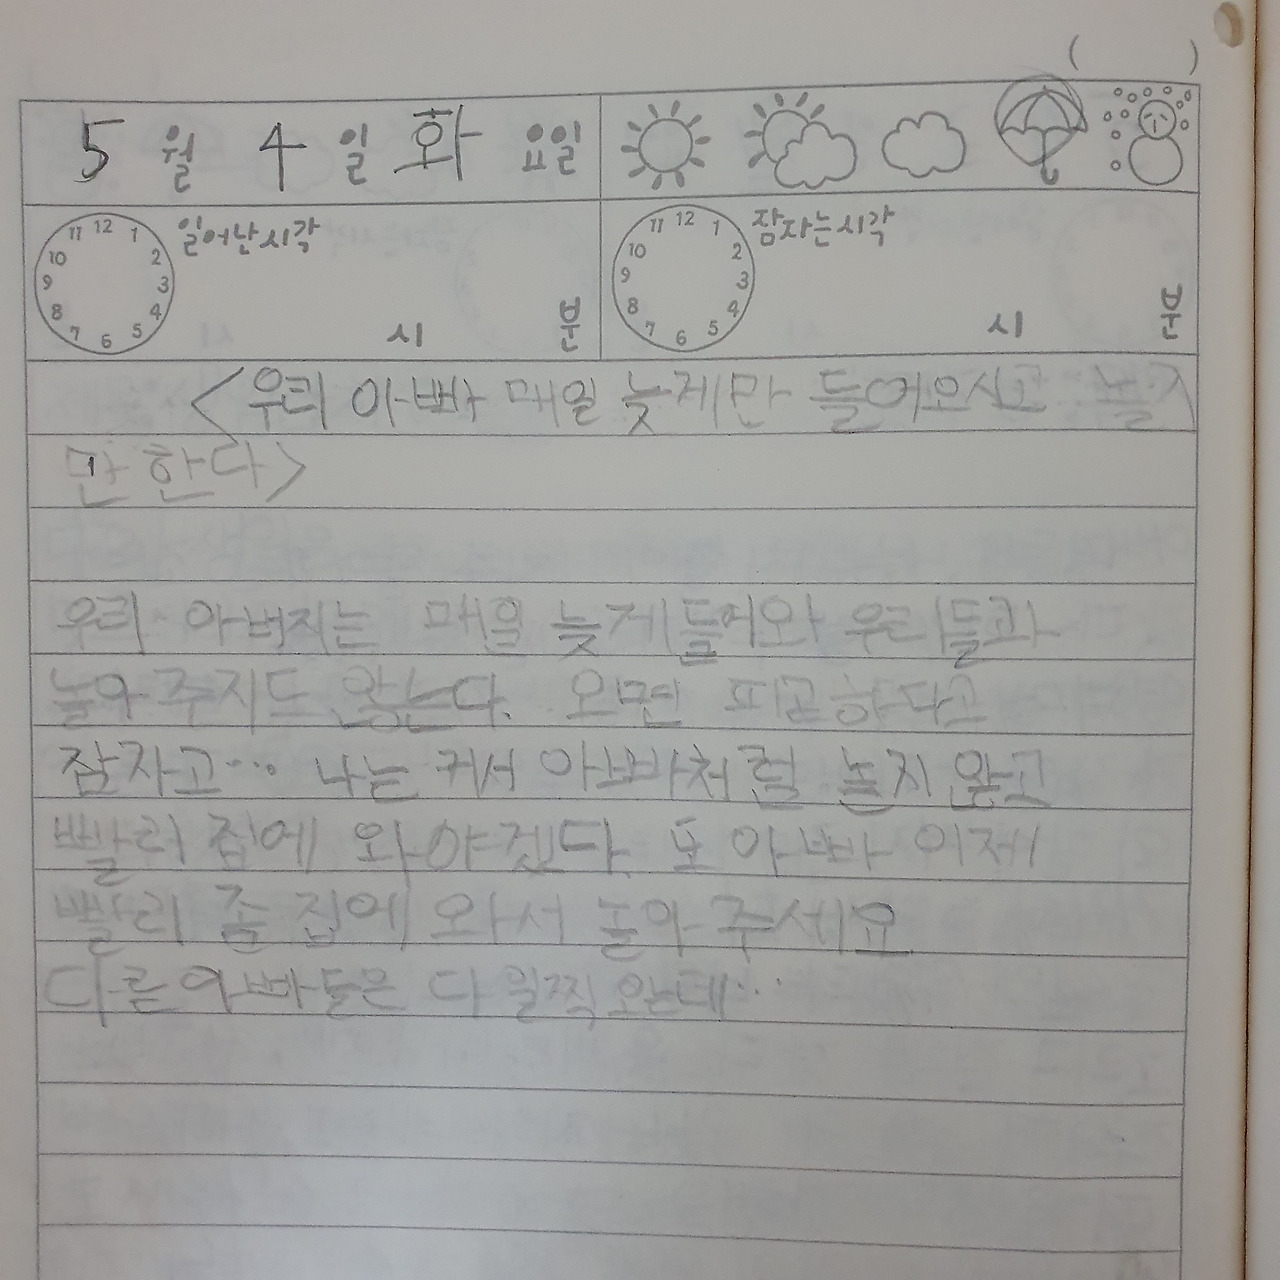 ( )
5 월 4 일 화 요일
11 12 1 10 2 9 3 8 4 7 6 5
일어난시각
시 분
11 12 1 10 2 9 3 8 4 7 6 5
잠자는시각
시 분
<우리 아빠 매일 늦게만 들어오시고 놀지
만 한다>
우리 아버지는 매일 늦게 들어와 우리들과
놀아 주지도 않는다. 오면 피곤하다고
잠자고… 나는 커서 아빠처럼 놀지 않고
빨리 집에 와야겠다. 또 아빠 이제
빨리 좀 집에 와서 놀아 주세요
다른 아빠들은 다 일찍 오는데…